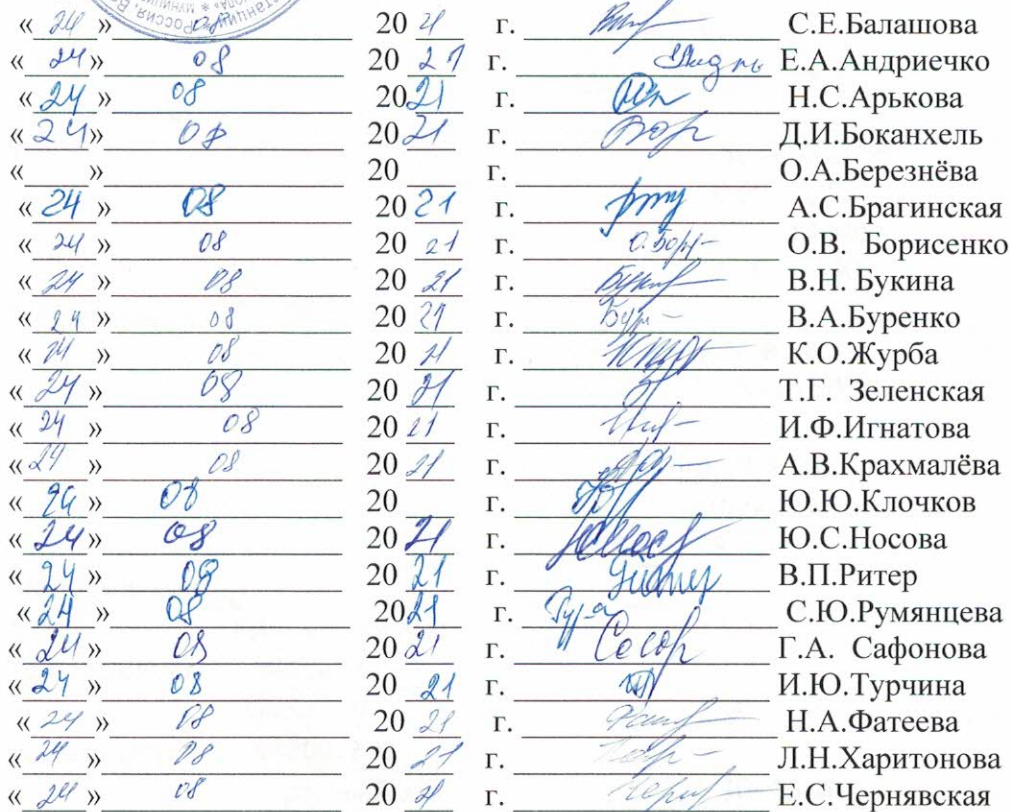 станици * Россия, В
* МУНИЦИП
« 24 » 08 20 21 г. С.Е.Балашова
« 24» 08 20 21 г. Е.А.Андриечко
« 24 » 08 2021 г. Н.С.Арькова
« 24» 08 20 21 г. Д.И.Боканхель
« » 20 г. О.А.Березнёва
« 24 » 08 20 21 г. А.С.Брагинская
« 24 » 08 20 21 г. О.В. Борисенко
« 24 » 08 20 21 г. В.Н. Букина
« 24 » 08 20 21 г. В.А.Буренко
« 24 » 08 20 21 г. К.О.Журба
« 24 » 08 20 21 г. Т.Г. Зеленская
« 24 » 08 20 21 г. И.Ф.Игнатова
«24 » 08 20 21 г. А.В.Крахмалёва
« 24 » 08 20 г. Ю.Ю.Клочков
« 24 » 08 20 21 г. Ю.С.Носова
« 24 » 08 20 21 г. В.П.Ритер
« 24 » 08 2021 г. С.Ю.Румянцева
« 24 » 08 20 21 г. Г.А. Сафонова
« 24 » 08 20 21 г. И.Ю.Турчина
« 24 » 08 20 21 г. Н.А.Фатеева
« 24 » 08 20 21 г. Л.Н.Харитонова
« 24 » 08 20 21 г. Е.С.Чернявская